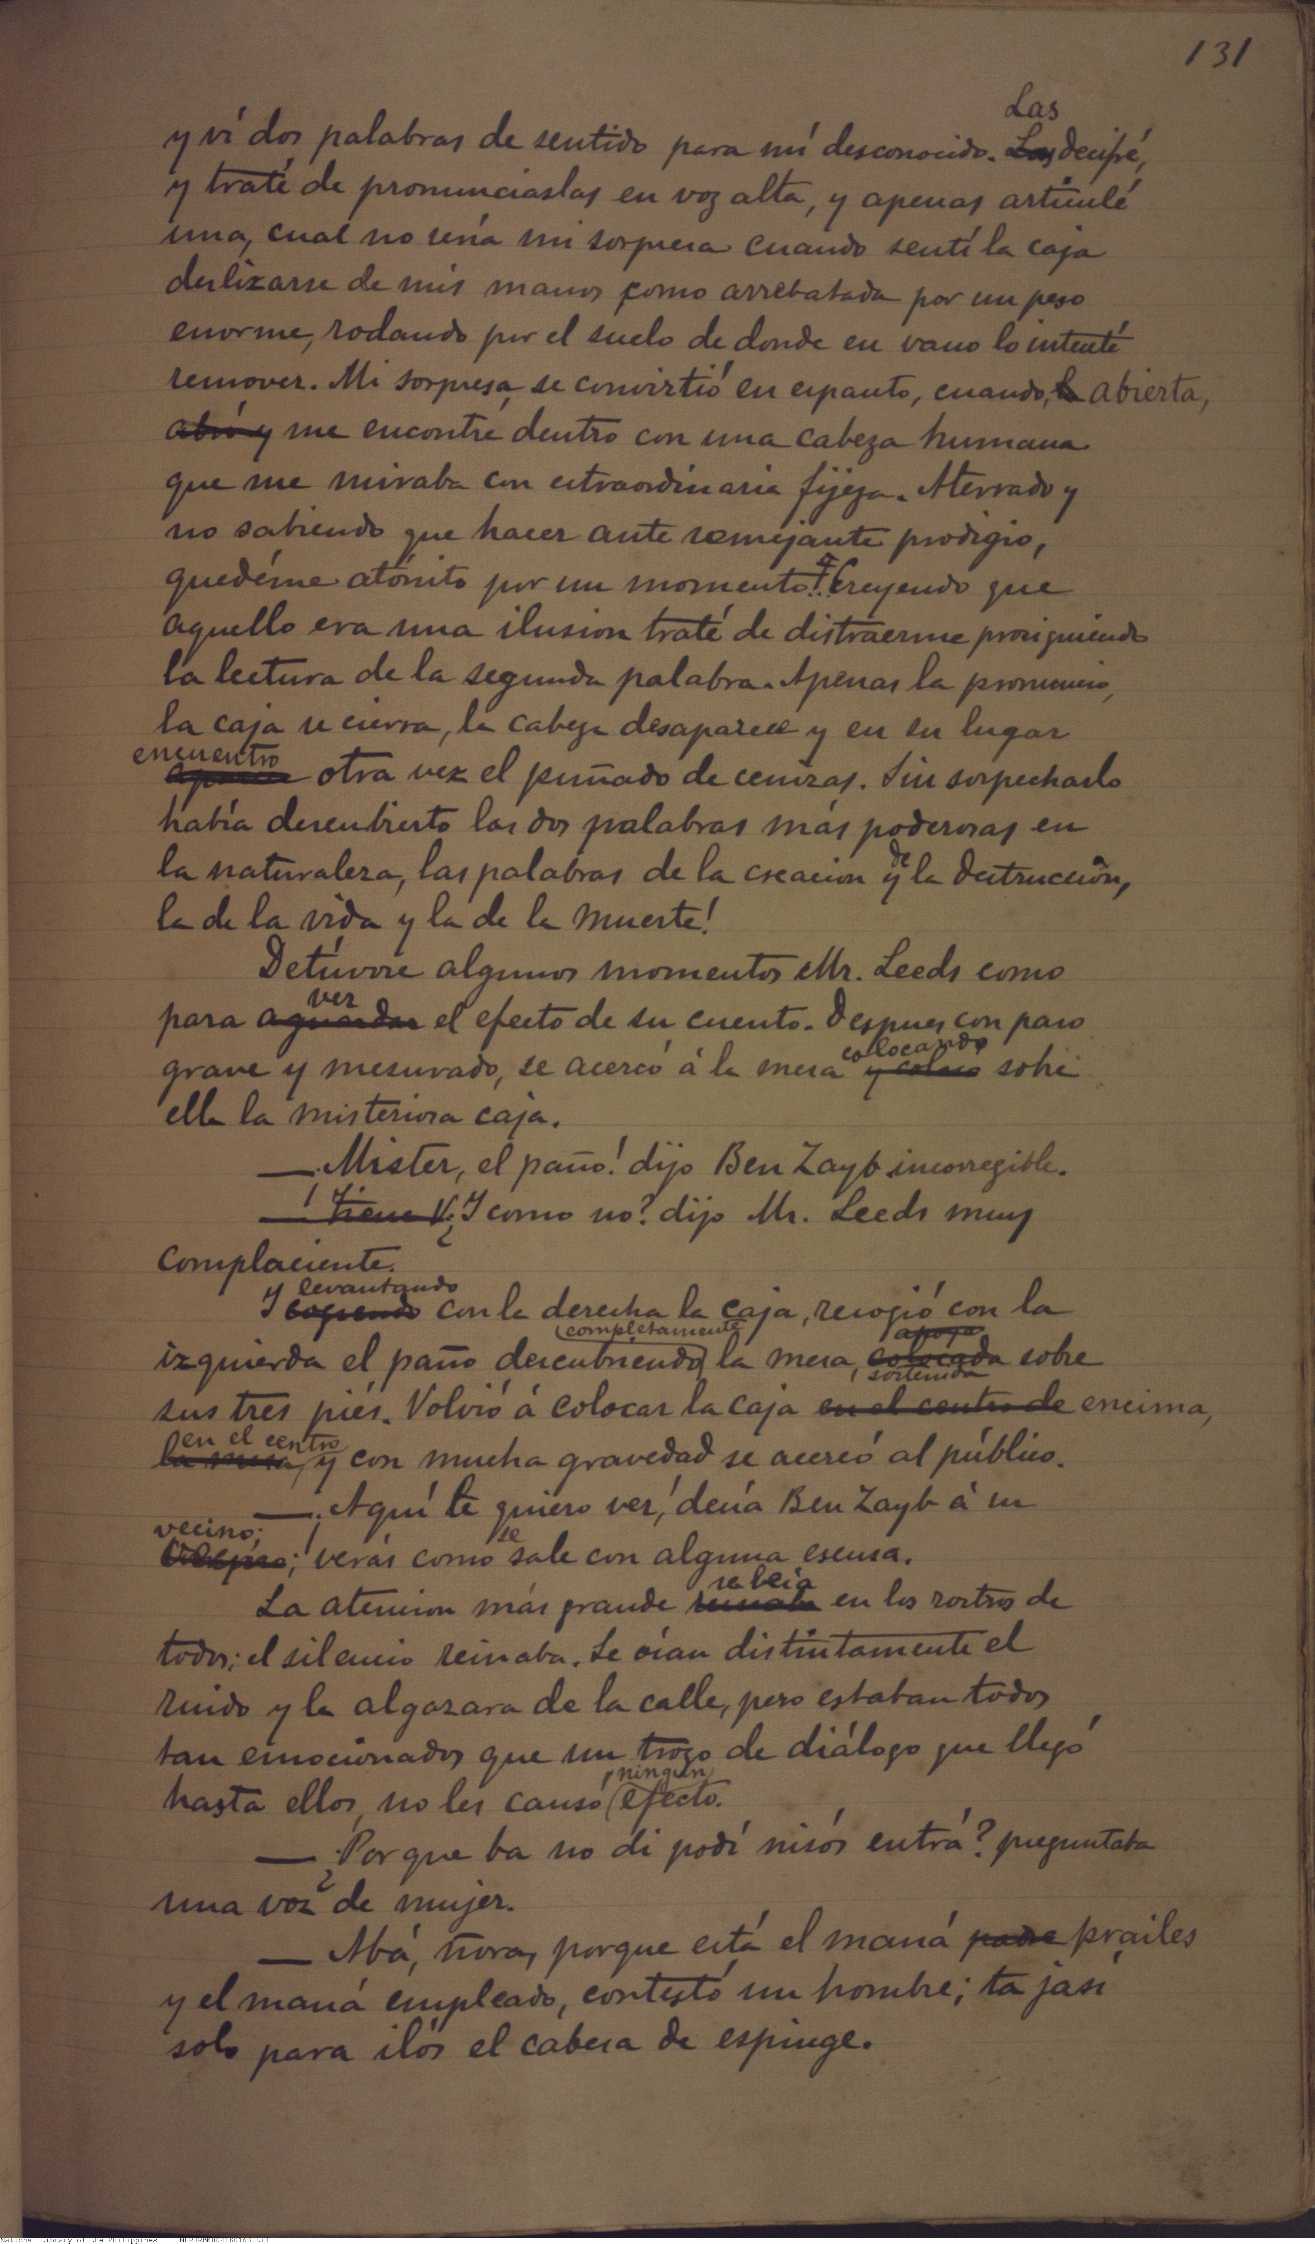 131
Las
y ví dos palabras de sentido para mí desconocido. Las decifré,
y traté de pronunciarlas en voz alta, y apenas articulé
una, cual no sería mi sorpresa cuando sentí la caja
deslizarse de mis manos como arrebatada por un peso
enorme, rodando por el suelo de donde en vano lo intenté
remover. Mi sorpresa se convirtió en espanto, cuando, la abierta,
abrí y me encontré dentro con una cabeza humana
que me miraba con estraordinaria fijeza. Aterrado y
no sabiendo que hacer ante semejante prodigio,
quedéme atónito por un momento... Creyendo que
aquello era una ilusion traté de distraerme prosiguiendo
la lectura de la segunda palabra. Apenas la pronuncio,
la caja se cierra, la cabeza desaparece y en su lugar
encuentro
otra vez el puñado de cenizas. Sin sospecharlo
había descubierto las dos palabras más poderosas en
de
la naturaleza, las palabras de la creacion y la destrucción,
la de la vida y la de la muerte!
Detúvose algunos momentos Mr. Leeds como
ver
para aguardar el efecto de su cuento. Despues con paso
colocando
grave y mesurado, se acercó á la mesa y coloco sobre
ella la misteriosa caja.
— Mister, el paño! dijo Ben Zayb incorregible.
— Tiene V. ¿Y como no? dijo Mr. Leeds muy
complaciente.
y levantando
Y cogiendo con la derecha la caja, recogió con la
completamente apoya
izquierda el paño descubriendo la mesa, colocada sobre
sostenida
sus tres piés. Volvió á colocar la caja en el centro de encima,
en el centro
la mesa, y con mucha gravedad se acercó al público.
— ¡Aquí te quiero ver! decía Ben Zayb á su
vecino; se
verás como sale con alguna escusa.
se leía
La atencion más grande reinaba en los rostros de
todos; el silencio reinaba. Se oían distintamente el
ruido y la algazara de la calle, pero estaban todos
tan emocionados que un trozo de diálogo que llegó
ningun
hasta ellos, no les causó efecto.
— ¿Porque ba no di podí nisós entrá? preguntaba
una voz de mujer.
— Abá, ñora, porque está el maná padre prailes
y el maná empleado, contestó un hombre; ta jasí
solo para ilós el cabesa de espinge.